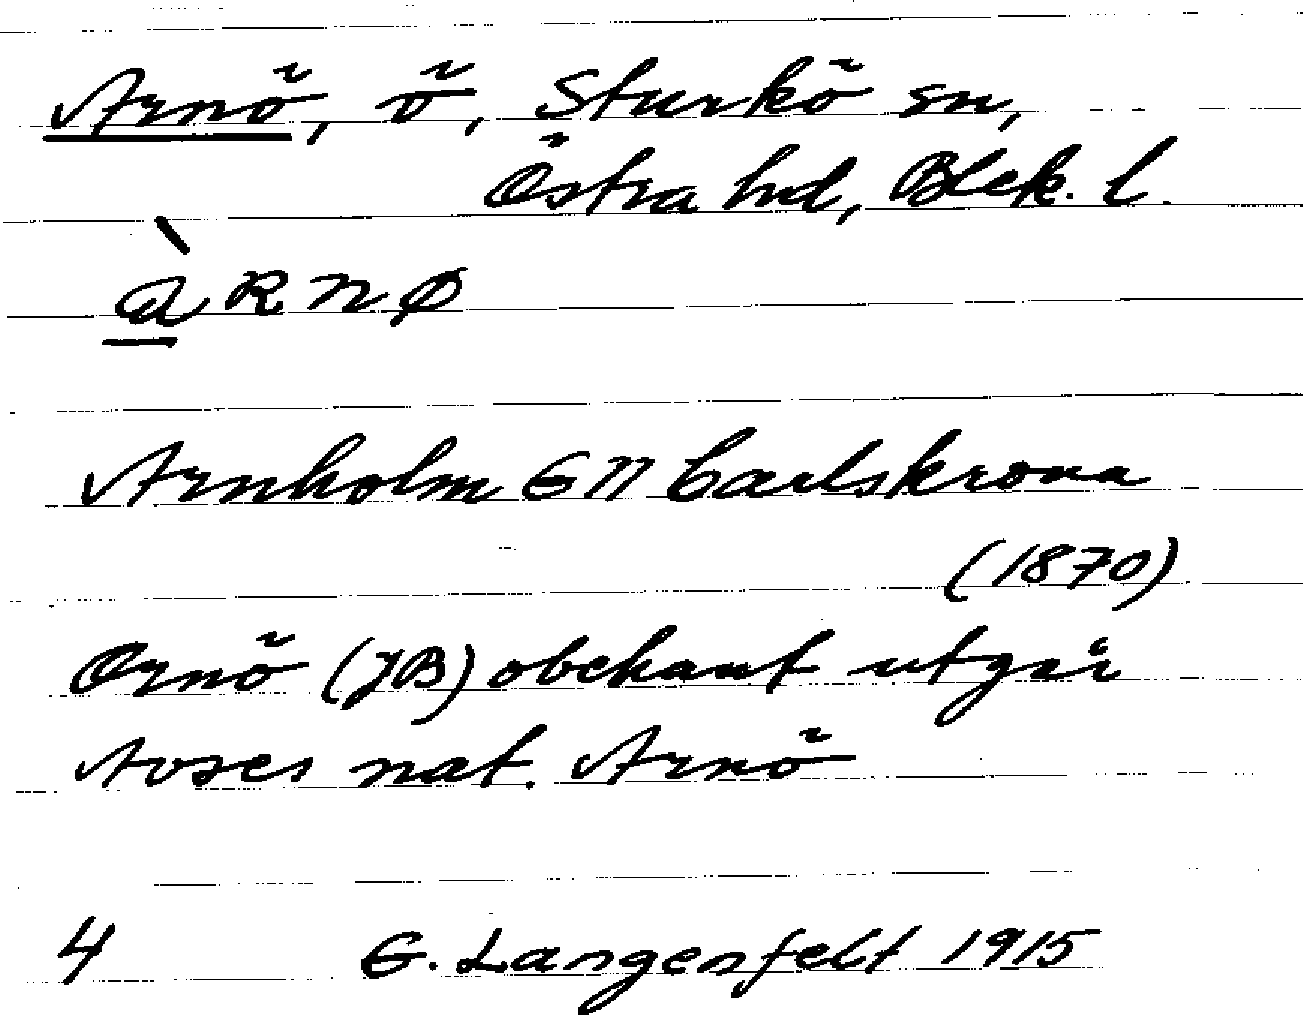 Arnö, ö, Sturkö sn,
Östra hd, Blek. l.
àRnø
Arnholm GN Carlskrona
(1870)
Ornö (JB) obekant utgår
Avses nat. Arnö
4 G. Langenfelt 1915